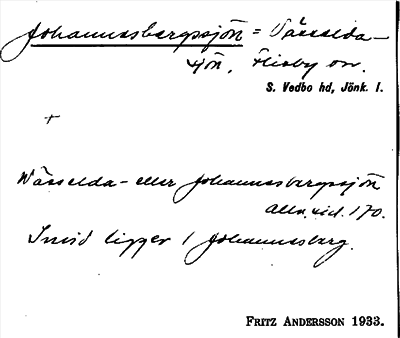 Johannesbergssjön = Vässelda-
sjön, Flisby sn.
S. Vedbo hd, Jönk. l.
+
Wässelda- eller Johannesbergssjön
Allv. sid. 170.
Invid ligger 1 Johannesberg.
FRITZ ANDERSSON 1933.